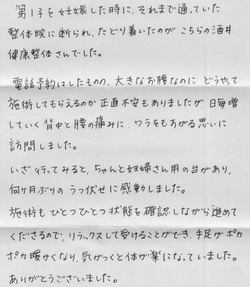 第1子を妊娠した時に、それまで通っていた
整体院に断られ、たどり着いたのが こちらの酒井
健康整体さんでした。
電話予約はしたものの、大きなお腹なのに どうやって
施術してもらえるのか 正直不安もありましたが、日毎増
していく 背中と腰の痛みに、ワラをもすがる思いに
訪問しました。
いざ行ってみると、ちゃんと妊婦さん用の台があり、
何ヶ月ぶりの うつ伏せに感動しました。
施術も ひとつひとつ 状態を確認しながら進めて
くださるので、リラックスして受けることができ、手足が ポカ
ポカ 暖かくなり、気がつくと体が楽になっていました。
ありがとうございました。